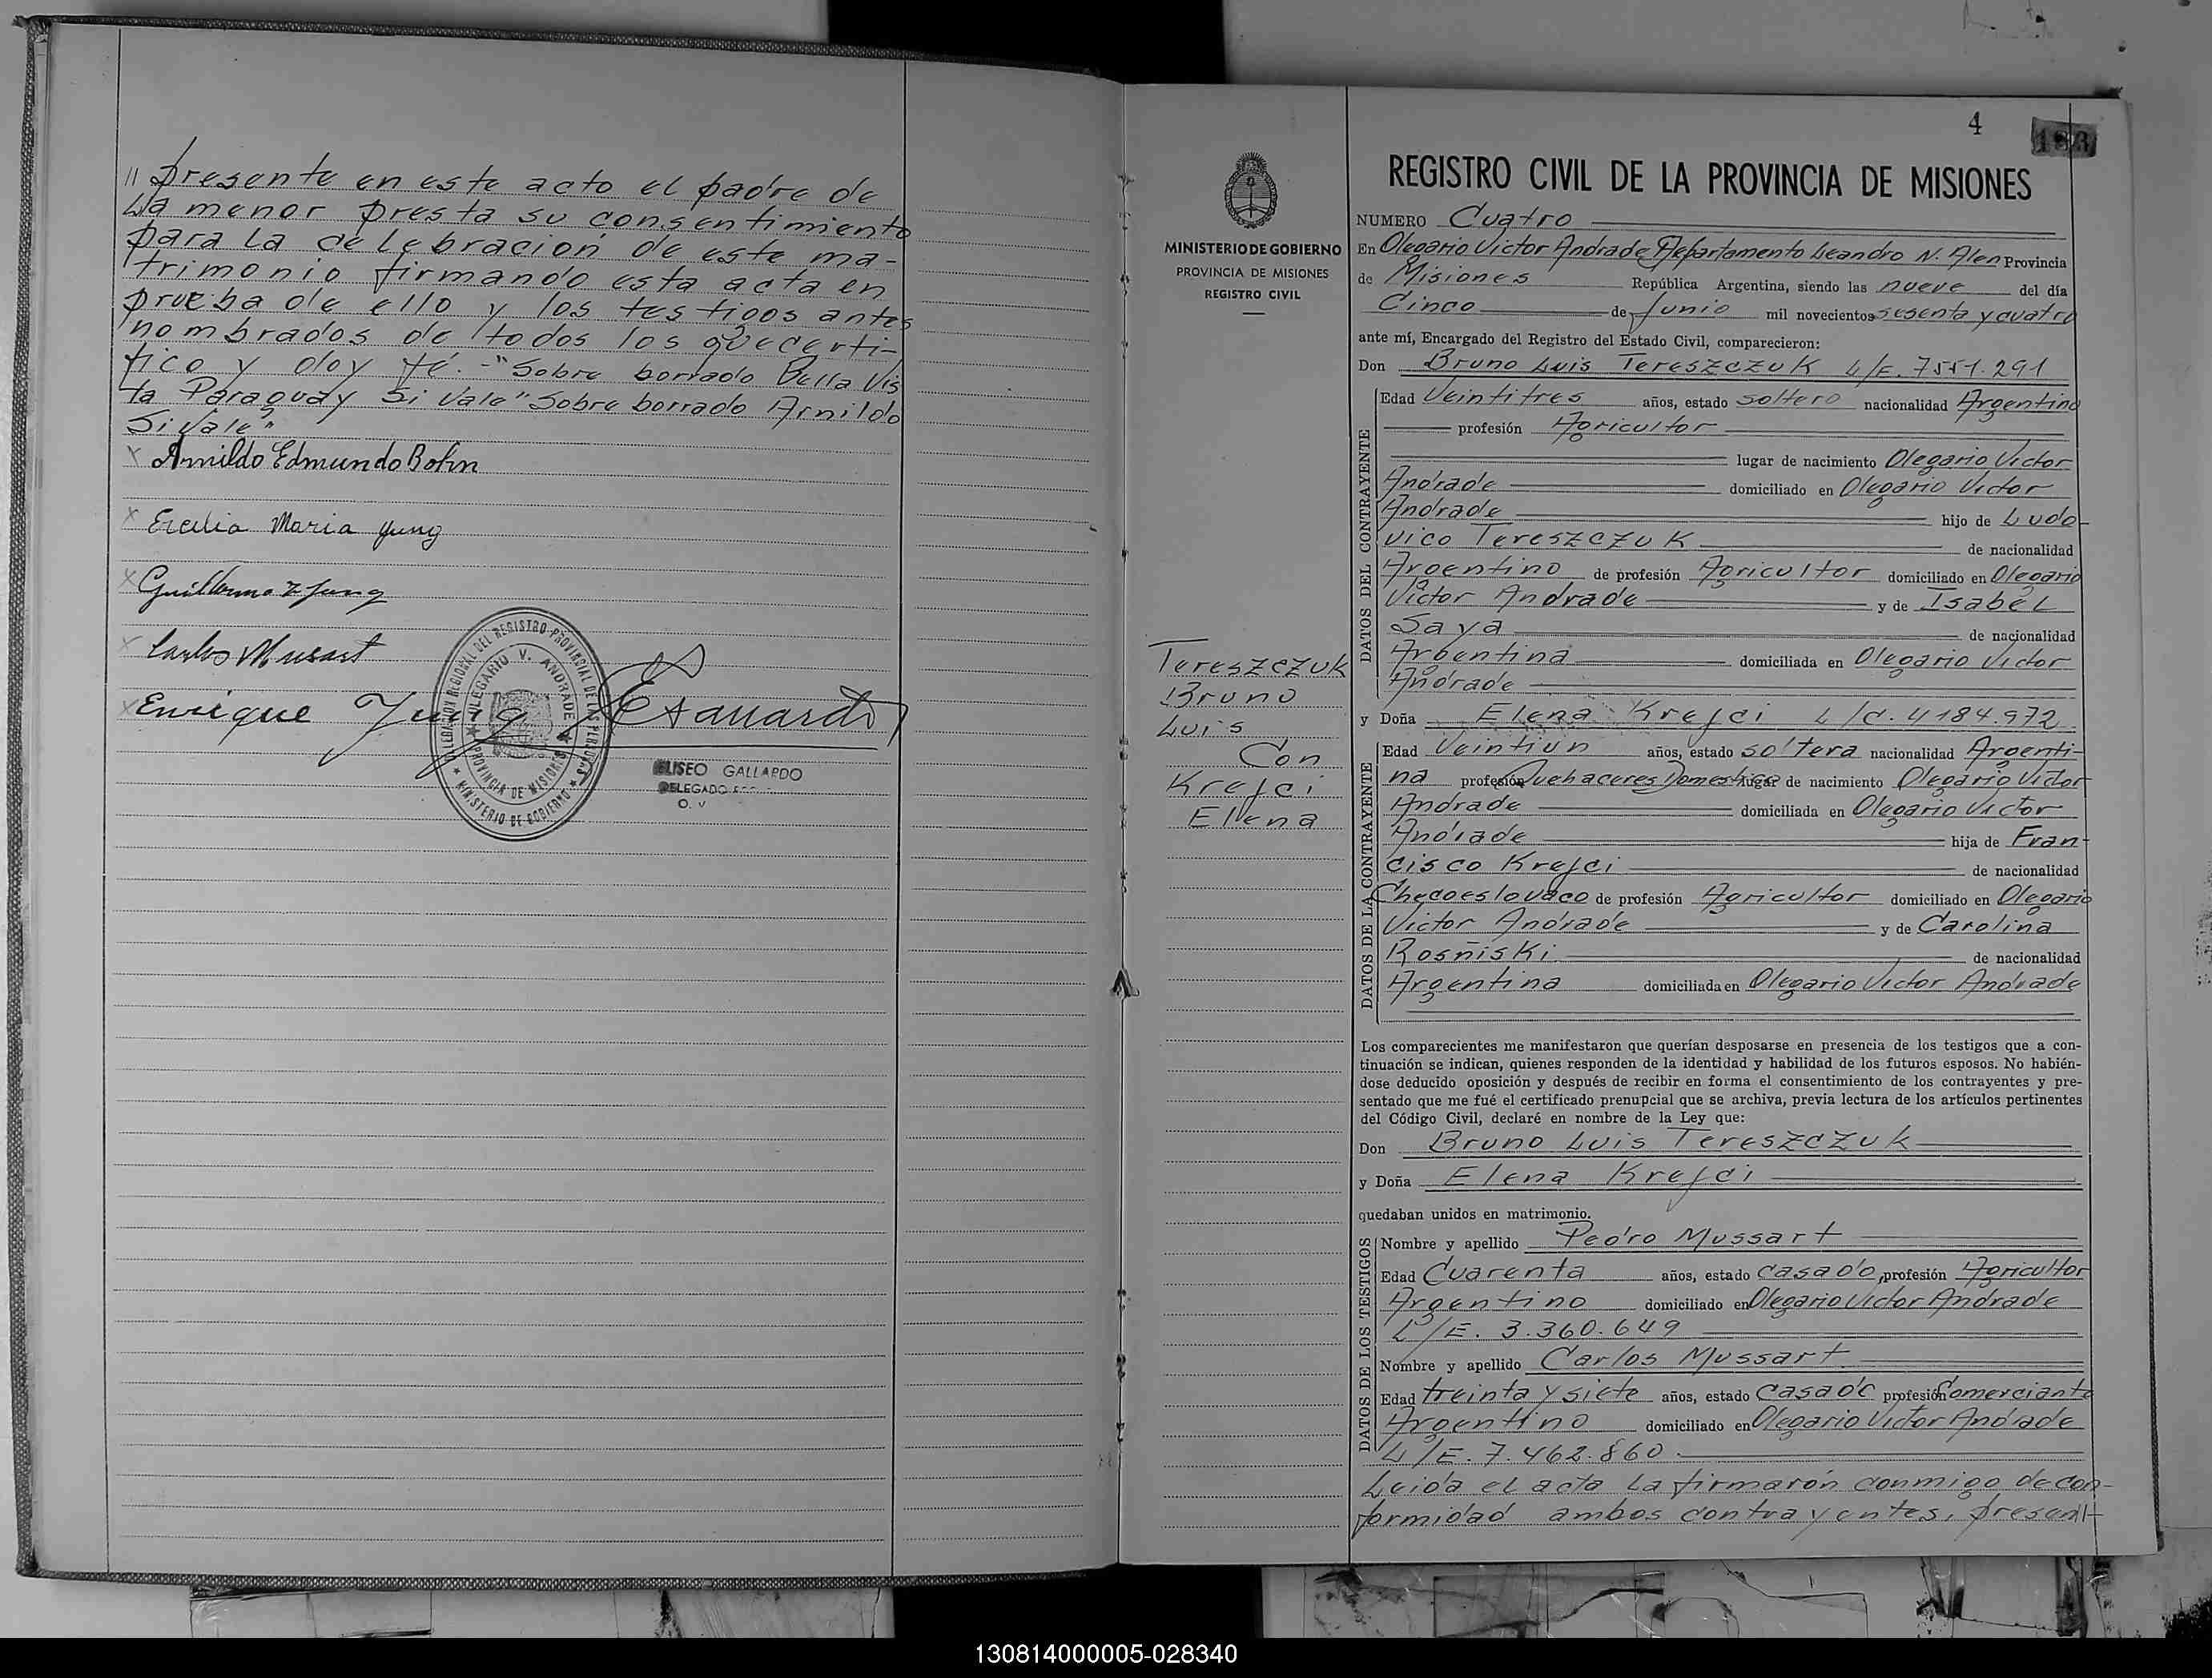 " presente en este acto el padre de
La menor presta su consentimiento
para la celebración de este ma-
trimonio firmando esta acta en
prueba de ello y los testigos antes
nombrados de todos los que certi-
fico y doy fé.- "Sobre borrado Bella Vis
ta Paraguay Si Vale" Sobre borrado Arnildo
Si Vale"
x Arnildo Edmundo Bohn
x Ercilia Maria Yung
x Guillermo Yung
x Carlos Musart
x Enrique Yung
DELEGACION REGIONAL DEL REGISTRO PROVINCIAL DE LAS PERSONAS
OLEGARIO V. ANDRADE
PROVINCIA DE MISIONES
MINISTERIO DE GOBIERNO
ELISEO GALLARDO
DELEGADO
O. V
4
MINISTERIO DE GOBIERNO
PROVINCIA DE MISIONES
REGISTRO CIVIL
Tereszczuk
Bruno
Luis
Con
Krejci
Elena
REGISTRO CIVIL DE LA PROVINCIA DE MISIONES
NUMERO Cuatro
En Olegario Victor Andrade Departamento Leandro N. Alen Provincia
de Misiones República Argentina, siendo las nueve del día
Cinco de Junio mil novecientos sesenta y cuatro
ante mí, Encargado del Registro del Estado Civil, comparecieron:
Don Bruno Luis Tereszczuk L/E. 7551.291
DATOS DEL CONTRAYENTE
Edad Veintitres años, estado soltero nacionalidad Argentino
profesión Agricultor
lugar de nacimiento Olegario Victor
Andrade domiciliado en Olegario Victor
Andrade hijo de Ludo-
vico Tereszczuk de nacionalidad
Argentino de profesión Agricultor domiciliado en Olegario
Victor Andrade y de Isabel
Saya de nacionalidad
Argentina domiciliada en Olegario Victor
Andrade
y Doña Elena Krejci L/C. 4184.972
DATOS DE LA CONTRAYENTE
Edad Veintiun años, estado soltera nacionalidad Argenti-
na profesión Quehaceres Domestico lugar de nacimiento Olegario Victor
Andrade domiciliada en Olegario Victor
Andrade hija de Fran-
cisco Krejci de nacionalidad
Checoeslovaco de profesión Agricultor domiciliado en Olegario
Victor Andrade y de Carolina
Rosñiski de nacionalidad
Argentina domiciliada en Olegario Victor Andrade
Los comparecientes me manifestaron que querían desposarse en presencia de los testigos que a con-
tinuación se indican, quienes responden de la identidad y habilidad de los futuros esposos. No habién-
dose deducido oposición y después de recibir en forma el consentimiento de los contrayentes y pre-
sentado que me fué el certificado prenupcial que se archiva, previa lectura de los artículos pertinentes
del Código Civil, declaré en nombre de la Ley que:
Don Bruno Luis Tereszczuk
y Doña Elena Krejci
quedaban unidos en matrimonio.
DATOS DE LOS TESTIGOS
Nombre y apellido Pedro Mussart
Edad Cuarenta años, estado casado, profesión Agricultor
Argentino domiciliado en Olegario Victor Andrade
L/E. 3.360.649
Nombre y apellido Carlos Mussart
Edad treinta y siete años, estado casado profesión Comerciante
Argentino domiciliado en Olegario Victor Andrade
L/E. 7.462.860.
Leida el acta la firmarón conmigo de con-
formidad ambos contrayentes, present-
130814000005-028340